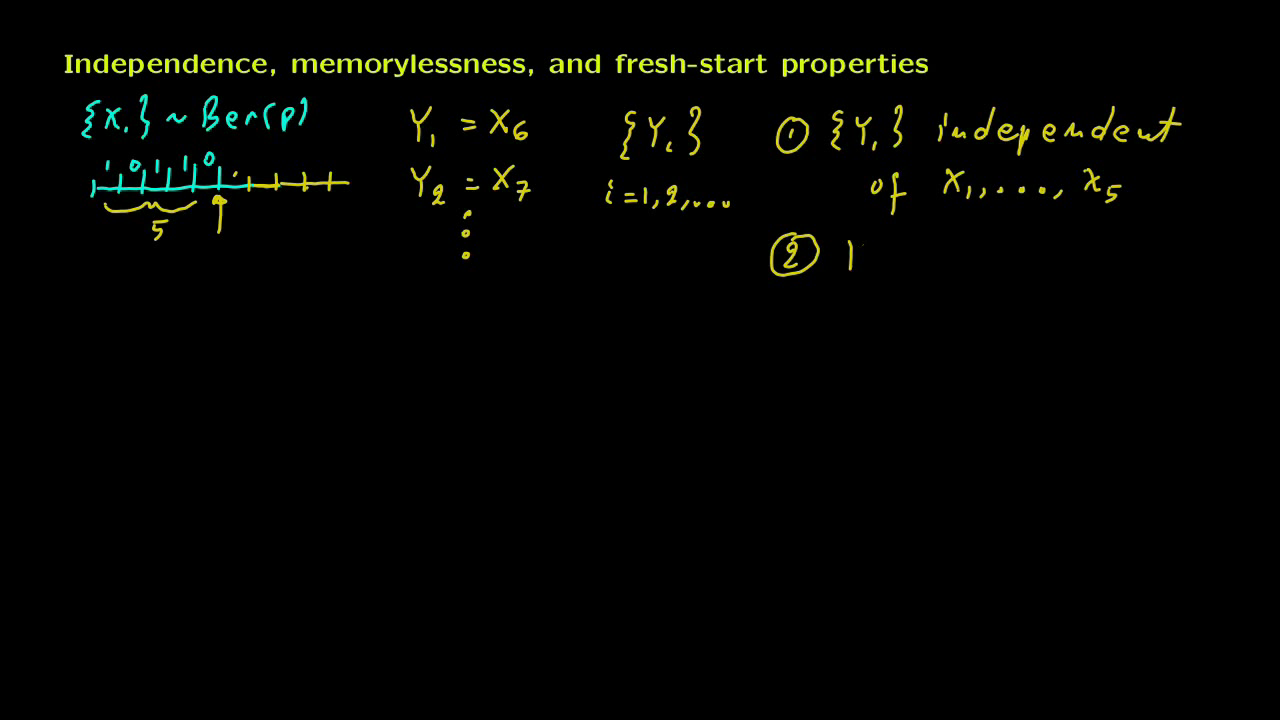 Independence, memorylessness, and fresh-start properties
{Xᵢ} ~ Ber(p)
1 0 1 1 0
5
Y₁ = X₆
Y₂ = X₇
⋮
{Yᵢ}
i = 1, 2, ...
① {Yᵢ} independent
of X₁, ..., X₅
②